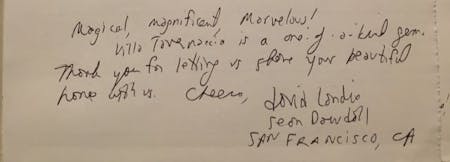 Magical, magnificent, Marvelous!
Villa Tavernaccia is a one-of-a-kind gem.
Thank you for letting us share your beautiful
home with us. Cheers, David Landis
Sean Dowdall
SAN FRANCISCO, CA